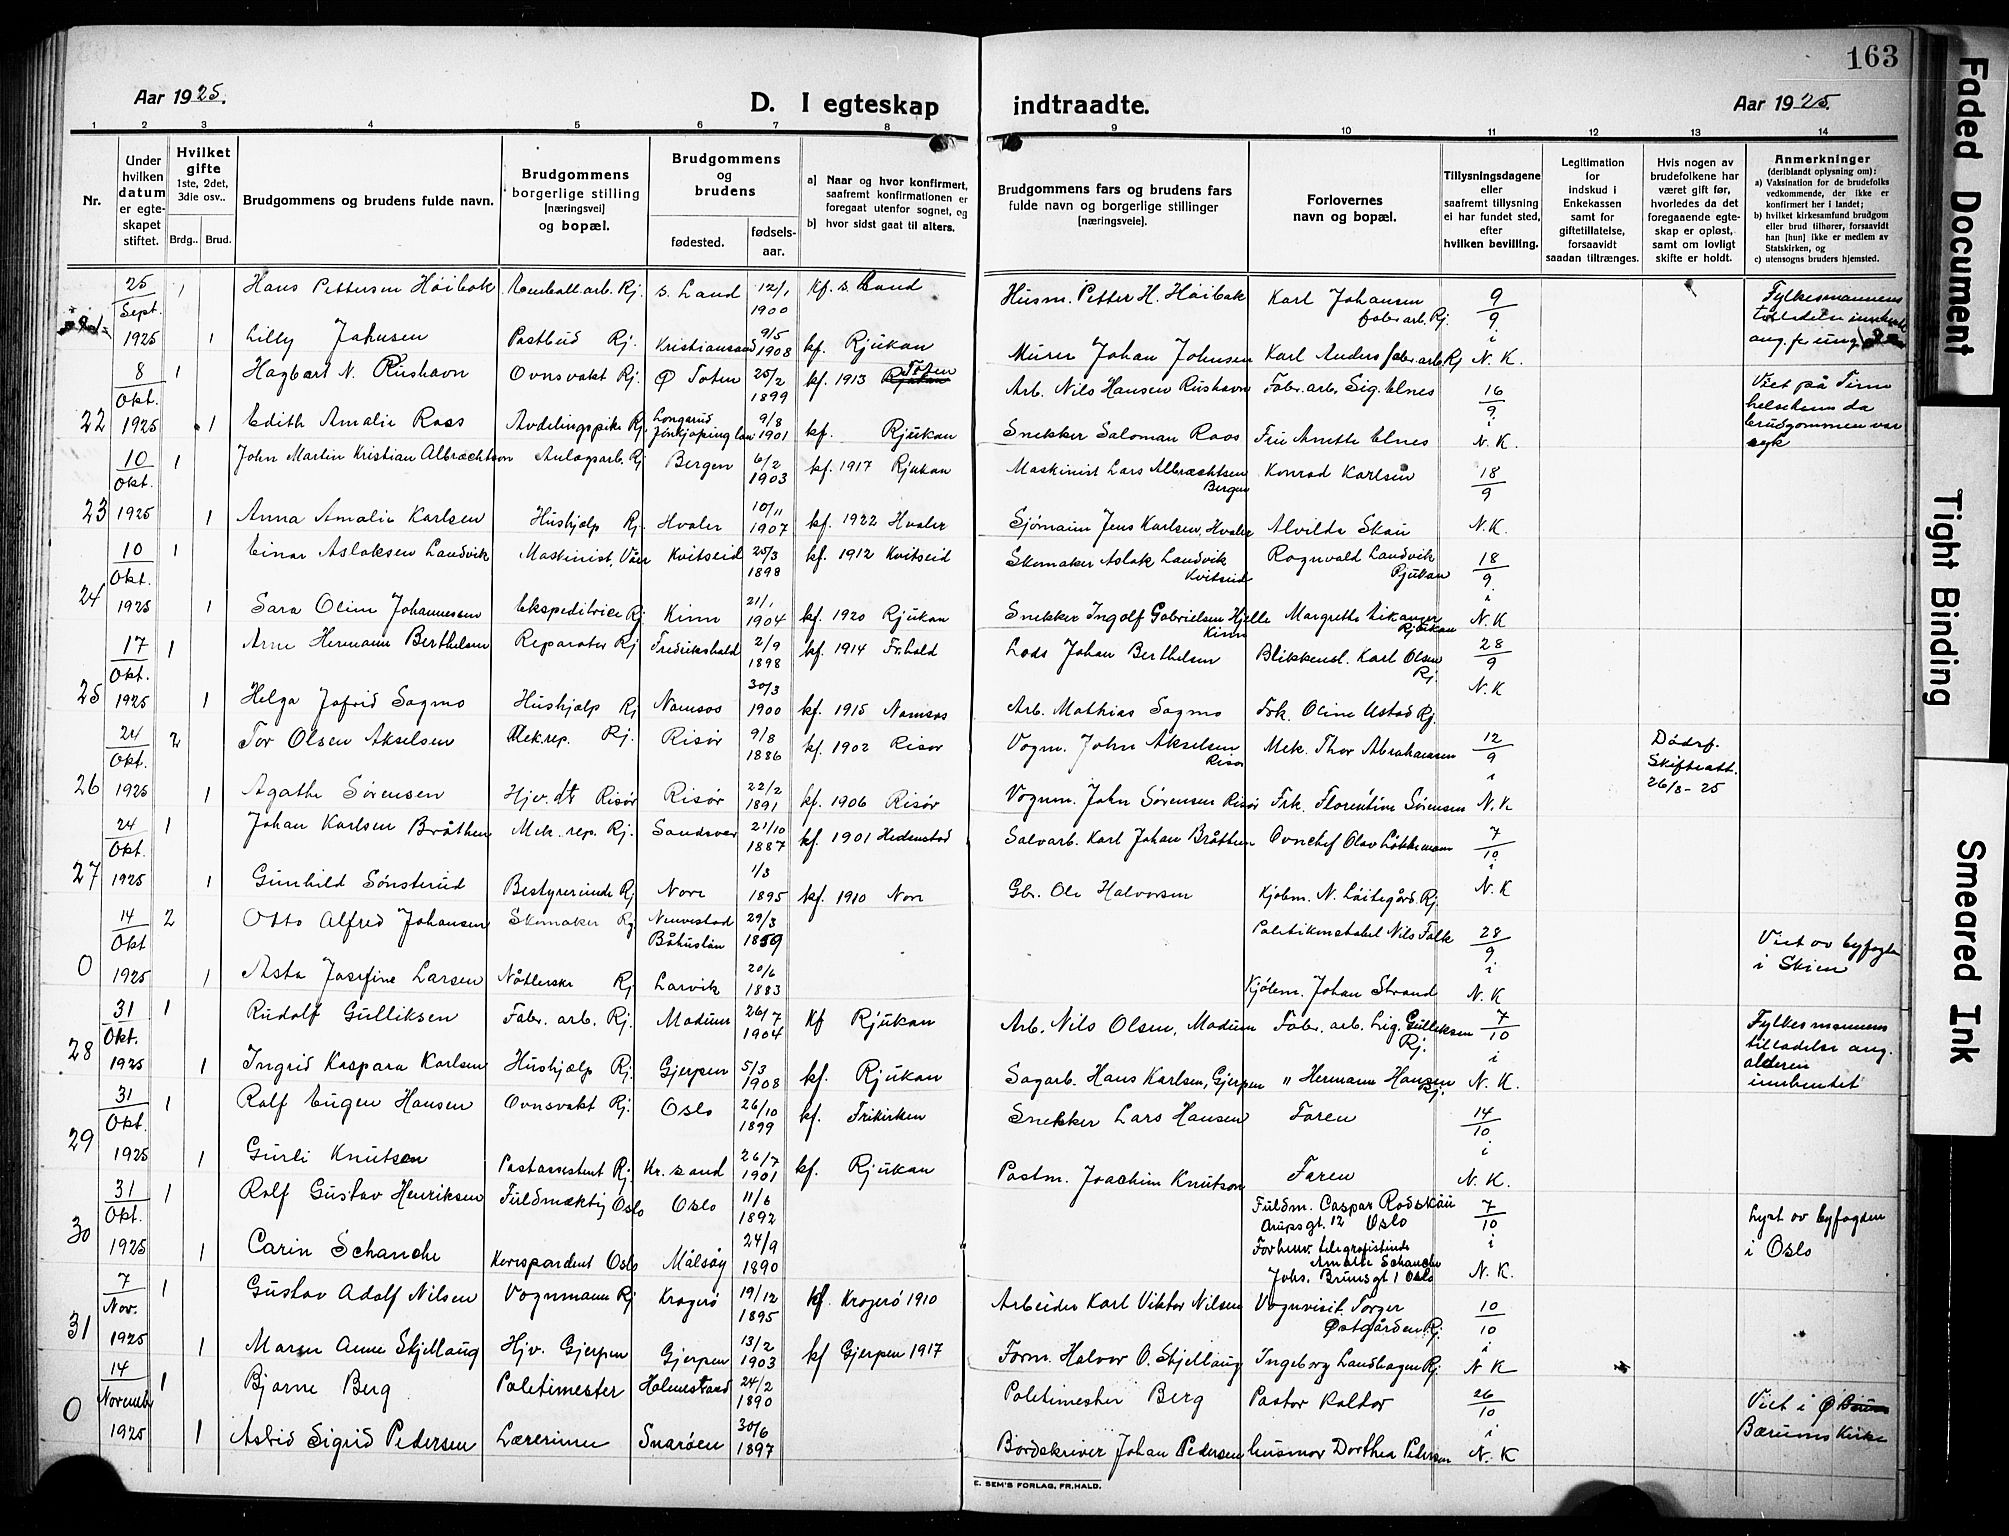 163
Aar 1925.
D. I egteskap indtraadte.
Aar 1925.
1 2 3 4 5 6 7 8 9 10 11 12 13 14
Nr.
Under hvilken datum er egteskapet stiftet.
Hvilket gifte 1ste, 2det, 3die osv..
Brdg.. Brud.
Brudgommens og brudens fulde navn.
Brudgommens borgerlige stilling [næringsvei] og bopæl.
Brudgommens og brudens
fødested. fødsels-aar.
a) Naar og hvor konfirmert, saafremt konfirmationen er foregaat utenfor sognet, og
b) hvor sidst gaat til alters.
Brudgommens fars og brudens fars fulde navn og borgerlige stillinger [næringsveie].
Forlovernes navn og bopæl.
Tillysningsdagene eller saafremt tillysning ei har fundet sted, efter hvilken bevilling.
Legitimation for indskud i Enkekassen samt for giftetillatelse, forsaavidt saadan tiltrænges.
Hvis nogen av brudefolkene har været gift før, hvorledes da det foregaaende egteskap er opløst, samt om lovligt skifte er holdt.
Anmerkninger (deriblandt oplysning om):
a) Vaksination for de brudefolks vedkommende, der ikke er konfirmert her i landet;
b) hvilket kirkesamfund brudgom eller brud tilhører, forsaavidt han [hun] ikke er medlem av Statskirken, og
c) utensogns bruders hjemsted.
25 Sept. 1 Hans Pettersen Høibak arb. Rj. S. Land 12/1 1900 kf. S. Land Husm. Petter H. Høibak Karl Johansen fabr arb. Rj. 9/9 Fylkesmannens
1925 1 Lilly Johnsen Postbud Rj. Kristiansand 9/5 1908 kf. Rjukan Murer Johan Johnsen Karl Anders fabr arb Rj i N. K.
8 Okt. 1 Hagbart N. Rushavn Ovnsvakt Rj. Ø Toten 25/2 1899 kf. 1913 Toten Arb. Nils Hansen Rushavn Fabr. arb. Sig. Elnes 16/9 Viet på Tinn helseheim da brudgommen var syk
22 1925 1 Edith Amalie Roos Avdelingspike Rj. Jönköping län 9/8 1901 kf. Rjukan Snekker Saloman Roos Fru Anette Elnes i N. K.
10 Okt. 1 John Martin Kristian Albrechtsen Anlagsarb. Rj Bergen 6/2 1903 kf. 1917 Rjukan Maskinist Lars Albrechtsen Bergen Konrad Karlsen 18/9
23 1925 1 Anna Amalie Karlsen Hushjælp Rj. Hvaler 10/11 1907 kf. 1922 Hvaler Sjömann Jens Karlsen, Hvaler Alvilda Skau N. K.
10 Okt. 1 Einar Aslaksen Landvik Maskinist, Våer Kvitseid 25/3 1898 kf. 1912 Kvitseid Skomaker Aslak Landvik Kvitseid Ragnvald Landvik Rjukan 18/9
24 1925 1 Sara Oline Johannessen Ekspeditrice Rj Kinn 21/1 1904 kf. 1920 Rjukan Snekker Ingolf Gabrielsen Hjelle Kinn Margrethe Eikanger Rjukan i N. K
17 Okt. 1 Arne Hermann Berthelsen Reparatør Rj Fredrikshald 2/9 1898 kf. 1914 Fr.hald Lods Johan Berthelsen Blikkensl. Karl Olsen Rj. 28/9
25 1925 1 Helga Jofrid Sagmo Hushjælp Rj Namsos 30/3 1900 kf. 1915 Namsos Arb. Mathias Sagmo Frk. Oline Ustad Rj. N. K
24 Okt. 2 Tor Olsen Akselsen Mek. rep. Rj. Risør 9/8 1886 kf. 1902 Risør Vogm. John Akselsen Risør Mek. Thor Abrahamsen 12/9 Dödsf. Skifteatt. 26/8-25
26 1925 1 Agathe Sørensen Hjv. dt Risør Risør 22/2 1891 kf. 1906 Risør Vognm. John Sørensen Risør Frk. Florentine Sørensen i N. K
24 Okt. 1 Johan Karlsen Bråthen Mek. rep. Rj. Sandsvær 21/10 1887 kf. 1901 Hedenstad Salvarb. Karl Johan Bråthen Ovnchef Olav Løkkemann 7/10
27 1925 1 Gunhild Sønsterud Bestyrerinde Rj Nore 1/3 1895 kf. 1910 Nore Gbr. Ole Halvorsen Kjøbm. N. Löitegård. Rj. i N. K
14 Okt 2 Otto Alfred Johansen Skomaker Rj Båhuslän 29/3 1869 Politikonstabel Nils Falk 28/9 Viet av byfogden i Skien
0 1925 1 Asta Josefine Larsen Nåtlerske Rj Larvik 20/6 1883 Kjölem. Johan Strand i N. K
31 Okt. 1 Rudolf Gulliksen Fabr. arb. Rj. Modum 26/7 1904 Kf Rjukan Arb. Nils Olsen, Modum Fabr. arb. Sig. Gulliksen Rj. 7/10 Fylkesmannens tilladelse ang. alderen innhentet
28 1925 1 Ingrid Kaspara Karlsen Hushjælp Rj. Gjerpen 5/3 1908 kf. Rjukan Sagarb. Hans Karlsen, Gjerpen " Hermann Hansen Rj. i N. K.
31 Okt. 1 Rolf Eugen Hansen Ovnsvakt Rj. Oslo 26/10 1899 kf. Frikirken Snekker Lars Hansen Faren 14/10
29 1925 1 Gurli Knutsen Postassistent Rj. Kr. sand 26/7 1901 kf. Rjukan Postm. Joachim Knutson Faren i N. K.
31 Okt. 1 Rolf Gustav Henriksen Fuldmæktig Oslo Oslo 11/6 1892 Fuldm. Caspar Rodskau Arupsgt. 12 Oslo 7/10 Lyst av byfogden i Oslo
30 1925 1 Carin Schanche Korrspondent Oslo Målsøy 24/9 1890 Forhenv. telegrafistinde Amalie Schanche Johs. Brunsgt 1 Oslo i N. K.
7 Nov. 1 Gustav Adolf Nilsen Vognmann Rj Kragerø 19/12 1895 kf. Kragerö 1910 Arbeider Karl Viktor Nilsen Vognvisit. Torger Østgården Rj. 10/10
31 1925 1 Maren Anne Skjellaug Hjv. Gjerpen Gjerpen 13/2 1903 kf Gjerpen 1917 Form. Halvor O. Skjellaug Ingeborg Landhagen Rj. i N K
14 Novemb 1 Bjarne Berg Politimester Holmestrand 24/2 1890 Politimester Berg Pastor Kaltor 26/10 Viet i Ø Bærums Kirke
0 1925 1 Astrid Sigrid Pedersen Lærerinne Snarøen 30/6 1897 Bordskriver Johan Pedersen husmor Dorthea Pedersen i N. K
E. SEM'S FORLAG, FR.HALD.
Faded Document
Tight Binding
Smeared Ink